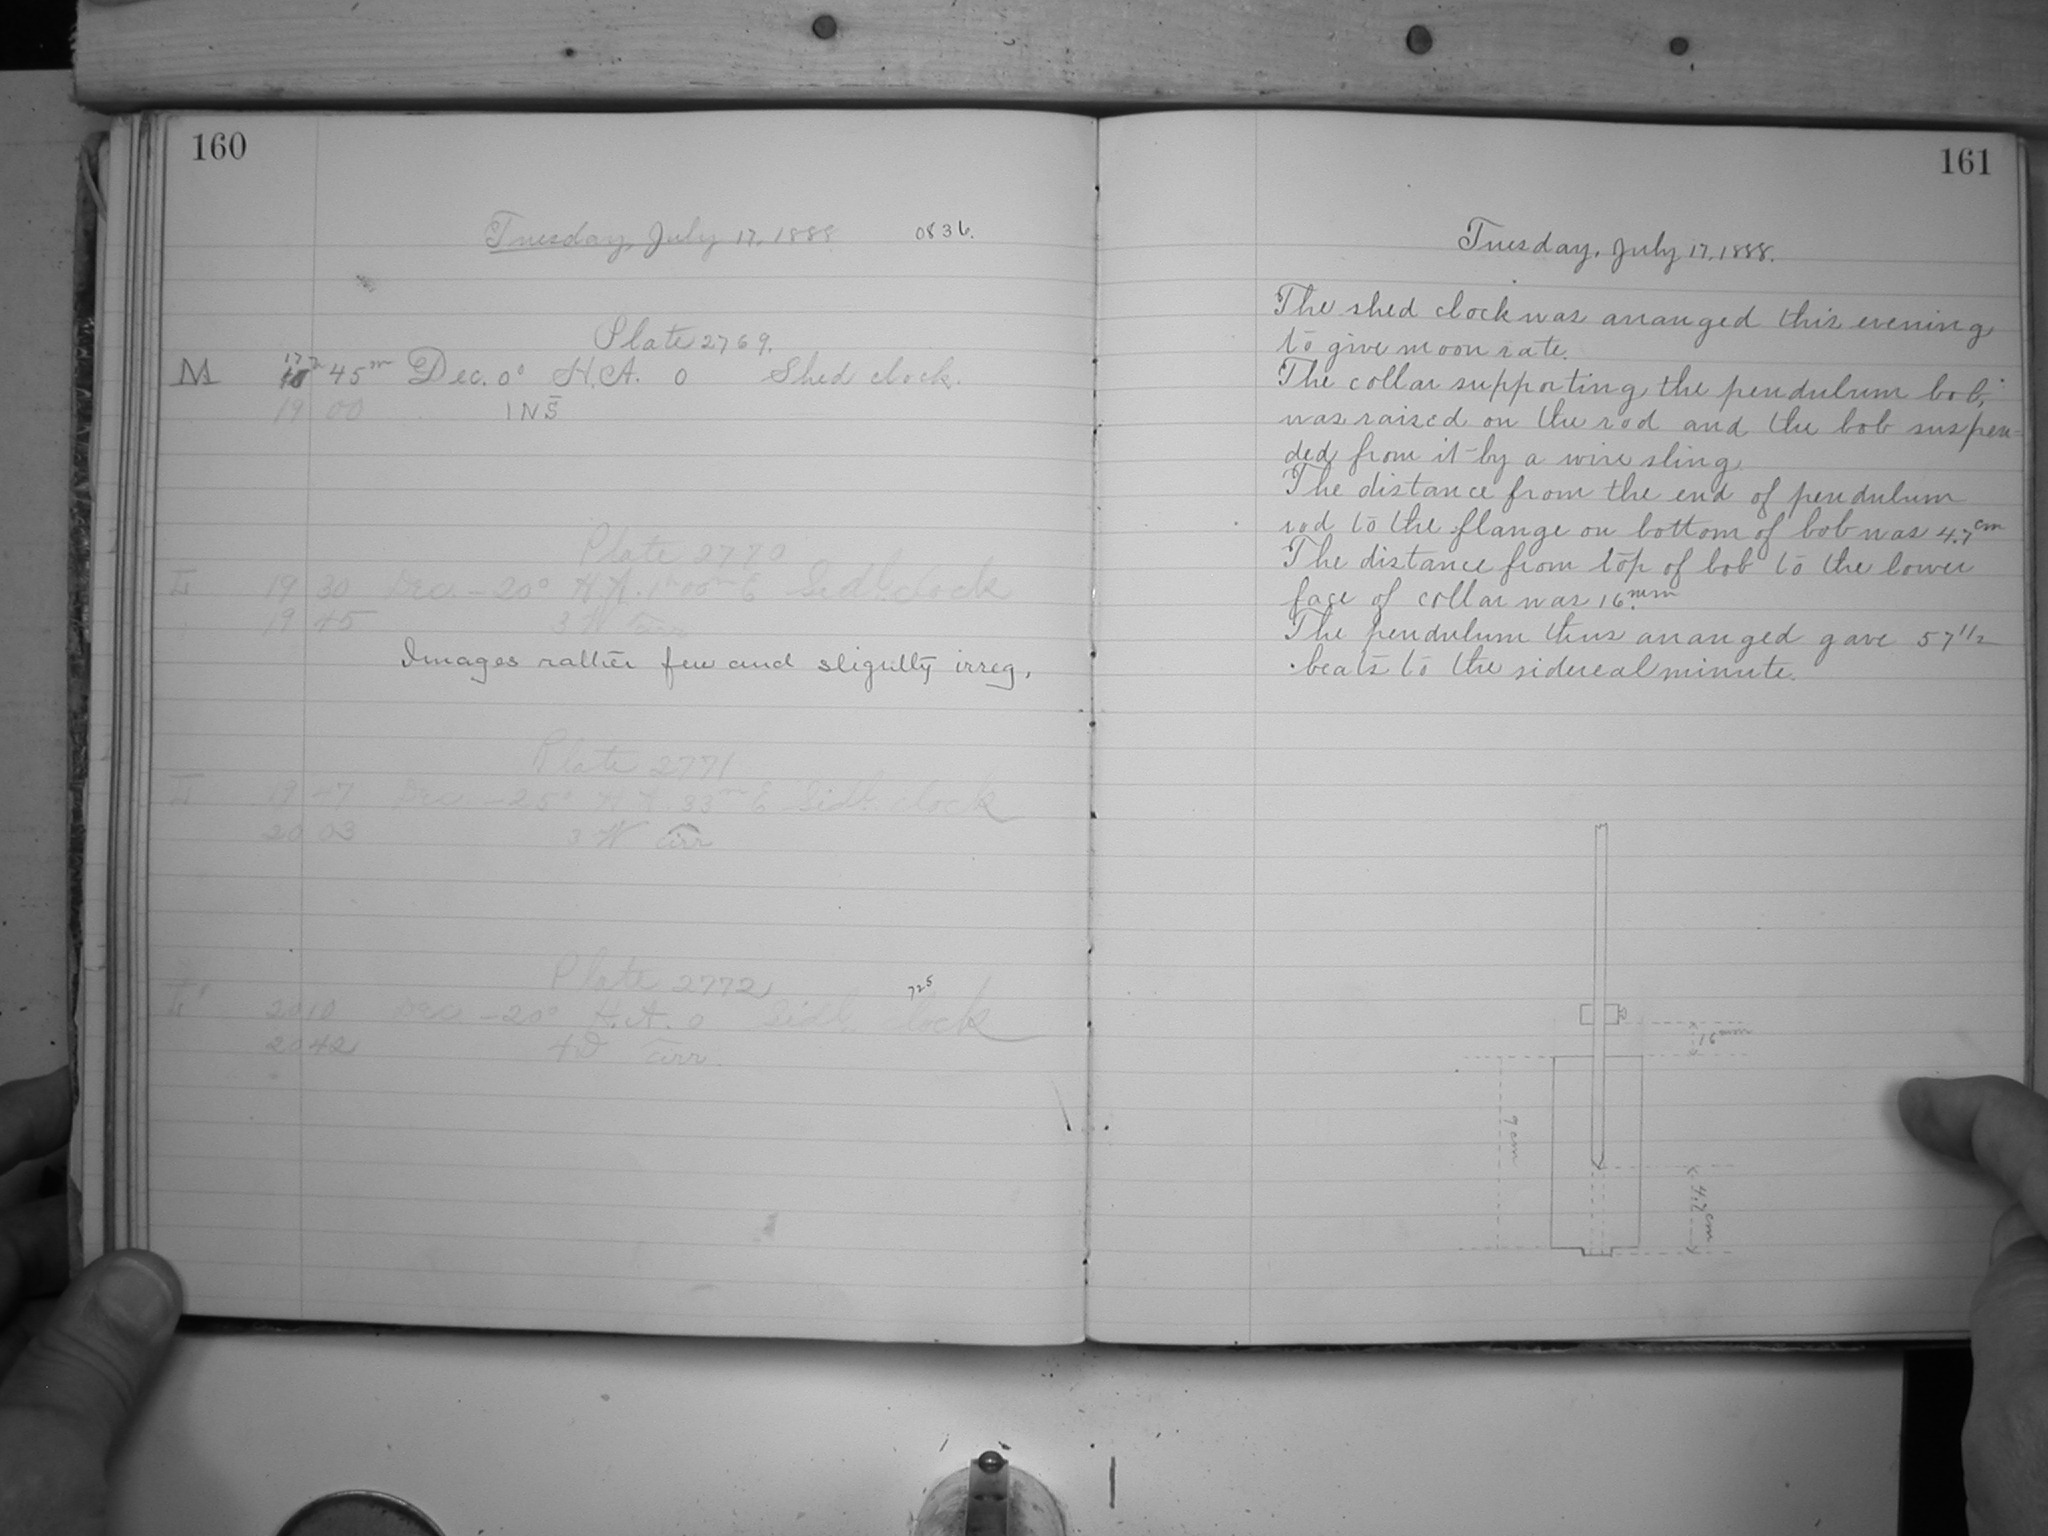 160
Tuesday, July 17, 1888 0836.
Plate 2769.
M 17h 45m Dec. 0° H.A. 0 Shed clock.
19 00 INS
Plate 2770
19 30 Dec. -20° H.A. 1h 00m E Sidl. clock
19 45 3 W
Images rather few and slightly irreg.
Plate 2771
19 Dec. -25° H.A. 33m E Sidl. clock
20 03 3 W cirr
Plate 2772 725
20 10 Dec -20° H.A. 0 Sidl. clock
20 42 cirr.
161
Tuesday, July 17, 1888.
The shed clock was arranged this evening
to give moon rate.
The collar supporting the pendulum bob,
was raised on the rod and the bob suspen-
ded from it by a wire sling.
The distance from the end of pendulum
rod to the flange on bottom of bob was 4.7cm
The distance from top of bob to the lower
face of collar was 16.mm
The pendulum thus arranged gave 57 1/2
beats to the sidereal minute.
16mm
9 cm
4.7cm